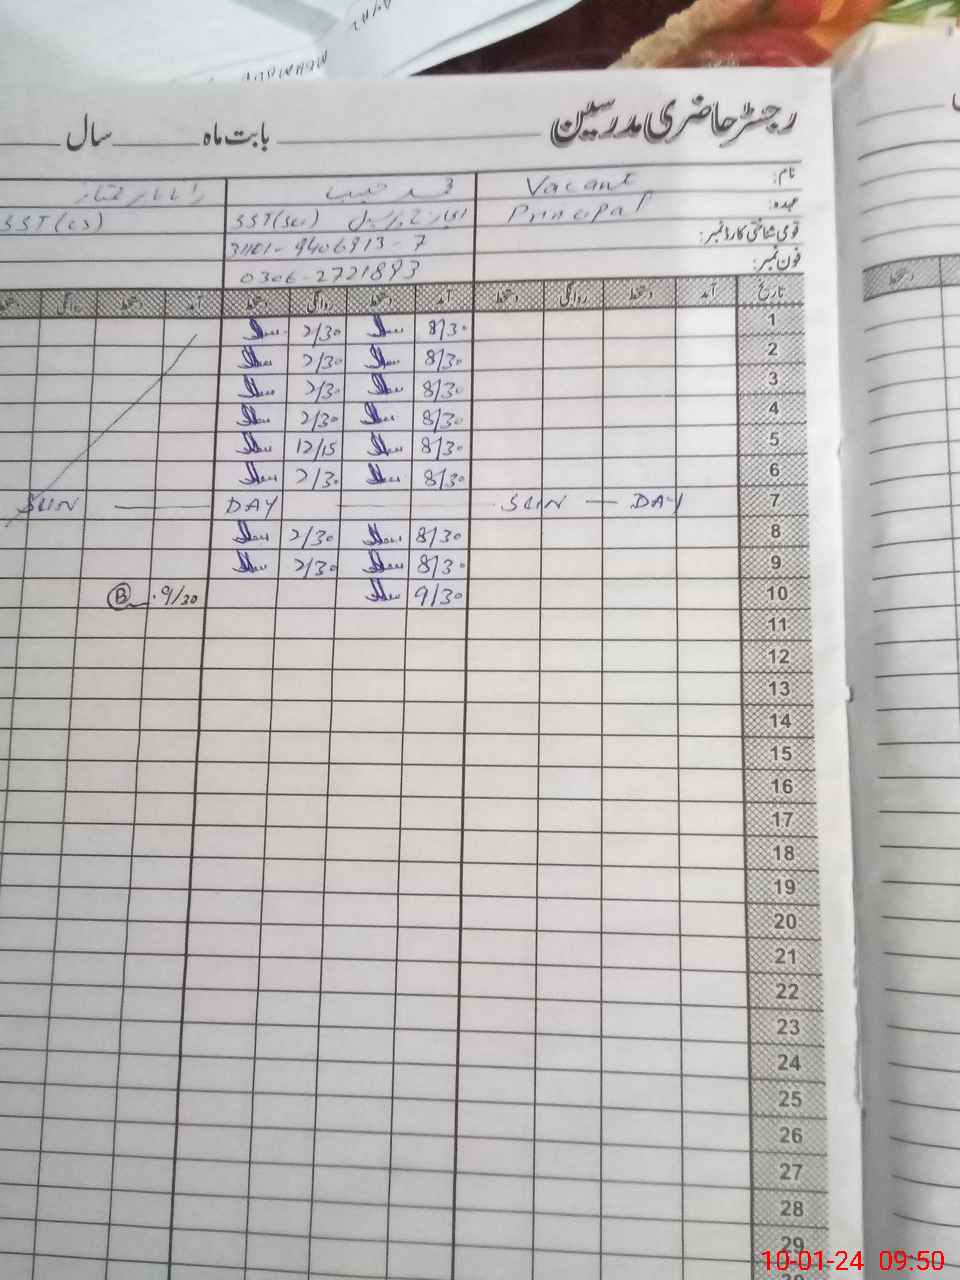 رجسٹر حاضری مدرسین بابت ماہ سال
نام: Vacant
عہدہ: Principal SST (Sci) SST (CS)
قومی شناختی کارڈ نمبر: 31101-9406913-7
فون نمبر: 0306-2721893
تاریخ آمد دستخط روانگی دستخط آمد دستخط روانگی دستخط آمد دستخط روانگی دستخط
1 8/30 2/30
2 8/30 2/30
3 8/30 2/30
4 8/30 2/30
5 8/30 12/15
6 8/30 2/30
7 SUN — DAY SUN — DAY
8 8/30 2/30
9 8/30 2/30
10 9/30 9/30 B
11
12
13
14
15
16
17
18
19
20
21
22
23
24
25
26
27
28
29
10-01-24 09:50